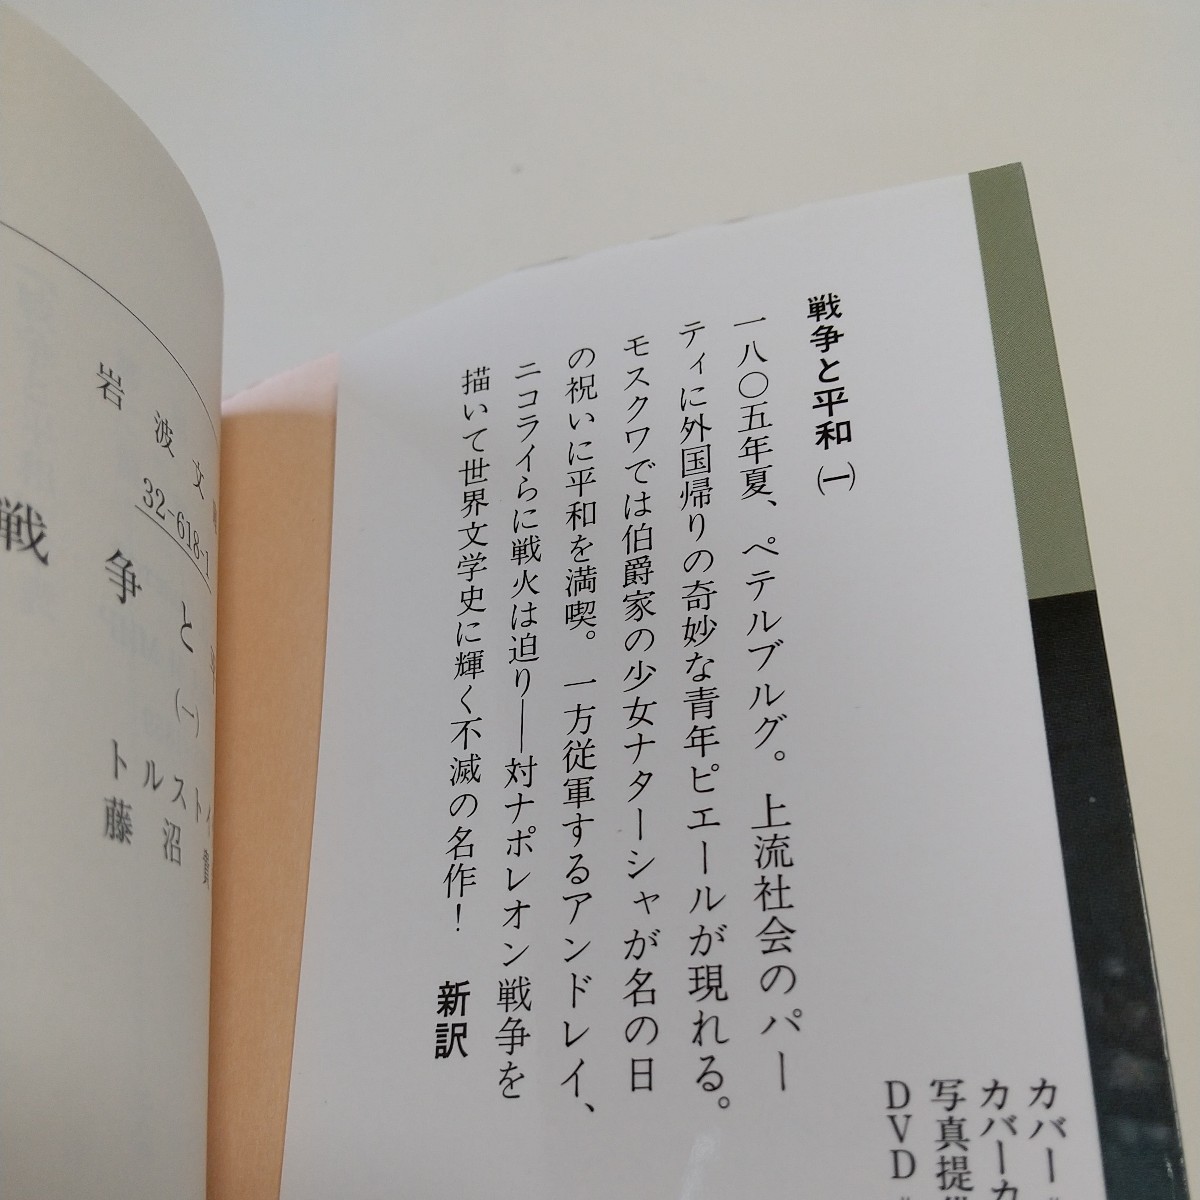 戦争と平和 ㈠
一八〇五年夏、ペテルブルグ。上流社会のパー
ティに外国帰りの奇妙な青年ピエールが現れる。
モスクワでは伯爵家の少女ナターシャが名の日
の祝いに平和を満喫。一方従軍するアンドレイ、
ニコライらに戦火は迫り──対ナポレオン戦争を
描いて世界文学史に輝く不滅の名作! 新訳
カバー
カバーカ
写真提供
DVD
岩波文
32-618-1
戦争と
㈠
トルスト
藤沼